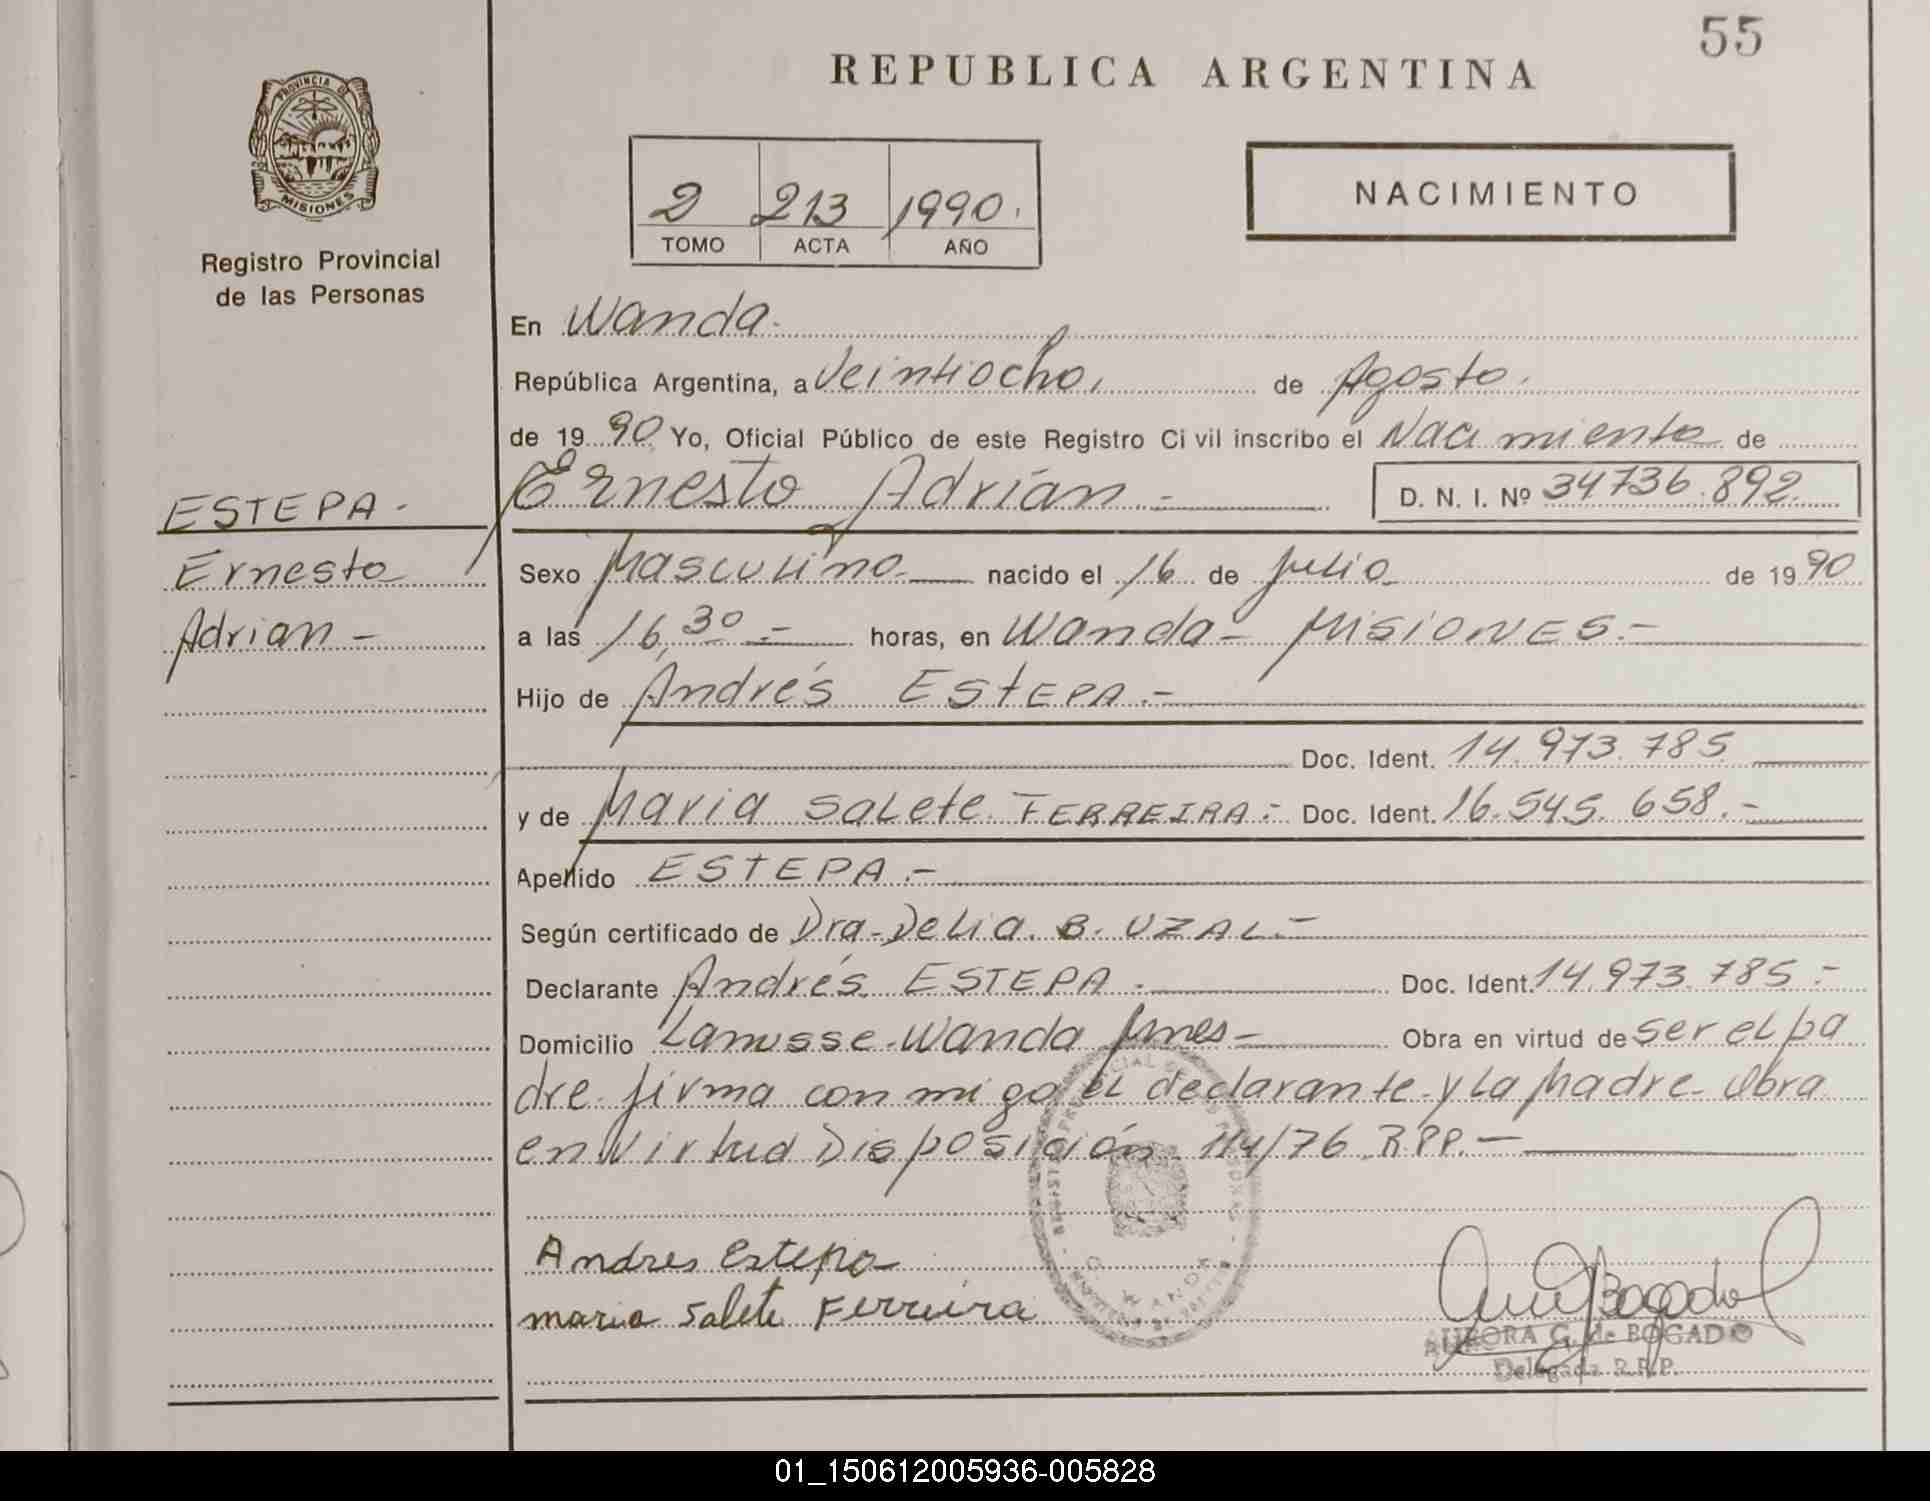 55
REPUBLICA ARGENTINA
PROVINCIA DE
MISIONES
Registro Provincial
de las Personas
2 213 1990.
TOMO ACTA AÑO
NACIMIENTO
En Wanda.
República Argentina, a Veintiocho, de Agosto.
de 1990 Yo, Oficial Público de este Registro Civil inscribo el Nacimiento de
Ernesto Adrián.- D. N. I. Nº 34736.892.
ESTEPA.-
Ernesto
Adrian-
Sexo Masculino nacido el 16 de Julio de 1990
a las 16,30.- horas, en Wanda- MISIONES.-
Hijo de Andrés ESTEPA.-
Doc. Ident. 14.973.785
y de Maria Salete FERREIRA.- Doc. Ident. 16.545.658.-
Apellido ESTEPA.-
Según certificado de Dra. Delia. B. UZAL.-
Declarante Andrés ESTEPA. Doc. Ident. 14.973.785.-
Domicilio Lanusse-Wanda Mnes- Obra en virtud de ser el pa
dre. firma con migo el declarante y la Madre. Obra
en virtud Disposición 114/76 R.P.P.-
Andres Estepa
maria Salete Ferreira
WANDA
AURORA G. de BOGADO
Delegada R.P.P.
01_150612005936-005828